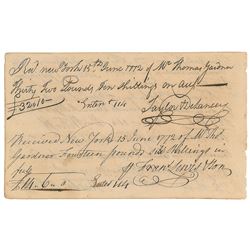 Recd new York 15th June 1772 of Mr Thomas Gardner
Thirty Two Pounds Ten Shillings on
£32.10.-
Taylor & Delancey
Received New York 15 June 1772 of Mr Thos
Gardener Fourteen pounds six Shillings in
full
£14.6.0 Francs Lewis & Son